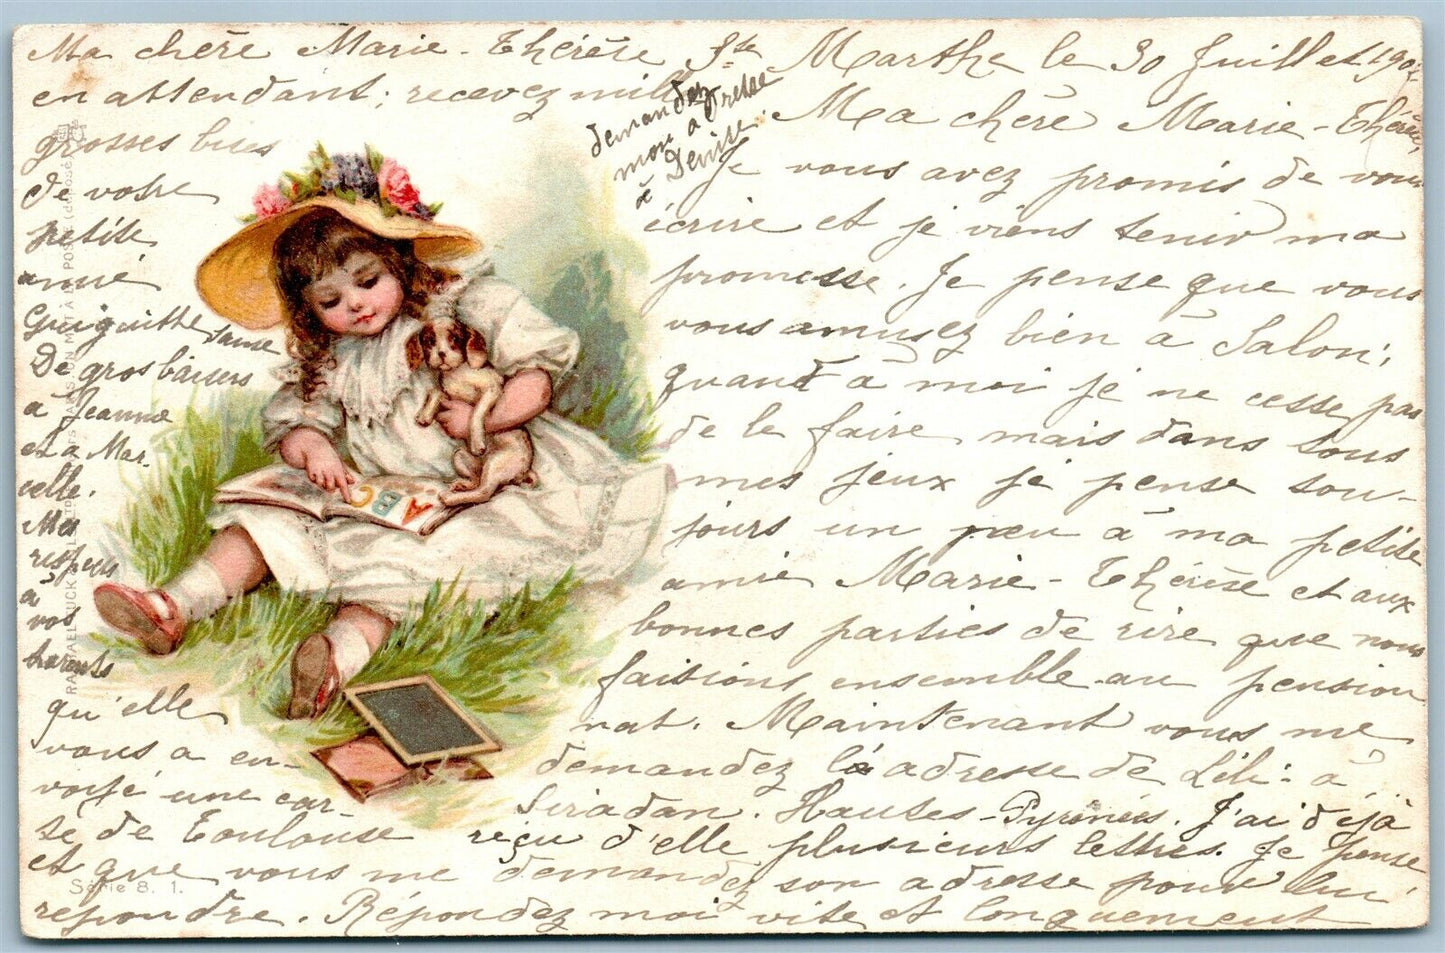 Ste Marthe le 30 Juillet 190
Ma chère Marie-Thérèse
Je vous avez promis de vous
écrire et je viens tenir ma
promesse. Je pense que vous
vous amusez bien à Salon;
quant à moi je ne cesse pas
de le faire, mais dans tous
mes jeux je pense tou-
jours un peu à ma petite
amie Marie-Thérèse et aux
bonnes parties de rire que nous
faisions ensemble au pension
nat. Maintenant vous me
demandez la adresse de Lili: à
Siradan. Hautes-Pyrénées. J'ai déjà
reçu d'elle plusieurs lettres. Je pense
qu'elle
vous a en-
voyé une car
te de Toulouse
et que vous me demandez son adresse pour lui
répondre. Répondez moi vite et longuement
Ma chère Marie-Thérèse
en attendant; recevez mille
grosses bises
de votre
petite
amie
Guiguitte
De gros baisers
à Jeanne
et à Mar.
celle.
Mes
respects
à
vos
parents
demandez
mon adresse
à Denise
RAPHAEL TUCK
Série 8. 1.
A B C